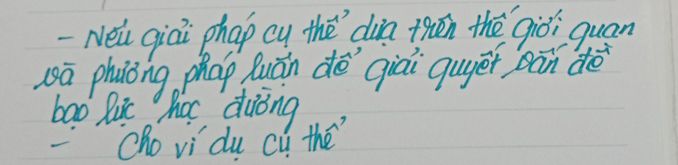 - Nếu giải pháp cụ thể dựa trên thế giới quan
và phương pháp luận để giải quyết vấn đề
bạo lực học đường
- Cho ví dụ cụ thể